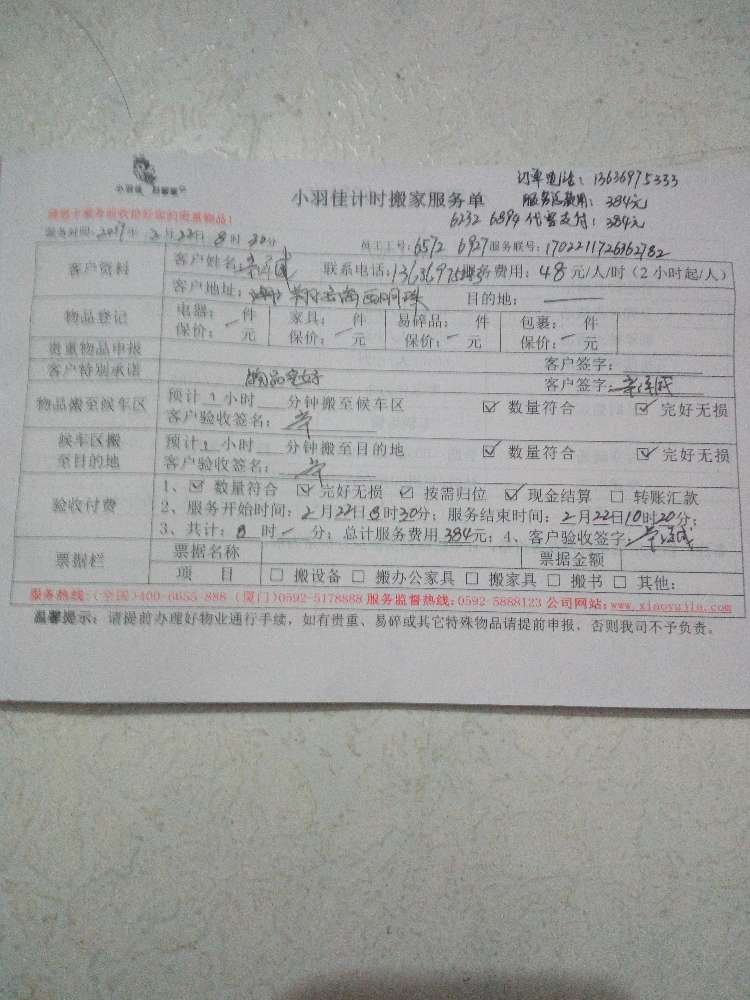 订单电话：13636975333
小羽佳计时搬家服务单
服务总费用：384元
6232 6894 代客支付：384元
服务时间：2017年 2月22日 8时30分
员工工号：6572 6927 服务联号：1702211726362782
客户资料
客户姓名：
联系电话：13636975333 服务费用：48元/人/时（2小时起/人）
客户地址：
目的地：
物品登记
电器： 件 家具： 件 易碎品： 件 包裹： 件
保价： 元 保价： 元 保价： 元 保价： 元
贵重物品申报
客户签字：
客户特别承诺
物品完好
客户签字：
物品搬至候车区
预计1小时 分钟搬至候车区 ☑ 数量符合 ☑ 完好无损
客户验收签名：
候车区搬至目的地
预计1小时 分钟搬至目的地 ☑ 数量符合 ☑ 完好无损
客户验收签名：
验收付费
1、☑ 数量符合 ☑ 完好无损 ☑ 按需归位 ☑ 现金结算 ☐ 转账汇款
2、服务开始时间：2月22日8时30分；服务结束时间：2月22日10时20分；
3、共计：8时 分；总计服务费用384元；4、客户验收签字：
票据栏
票据名称 票据金额
项 目 ☐ 搬设备 ☐ 搬办公家具 ☐ 搬家具 ☐ 搬书 ☐ 其他：
服务热线：(全国)400-6655-888 (厦门)0592-5178888 服务监督热线：0592-5888123 公司网站：www.xiaoyujia.com
温馨提示：请提前办理好物业通行手续，如有贵重、易碎或其它特殊物品请提前申报，否则我司不予负责。